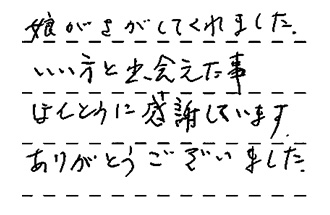 娘がさがしてくれました.
いい方と出会えた事
ほんとうに感謝しています.
ありがとうございました.